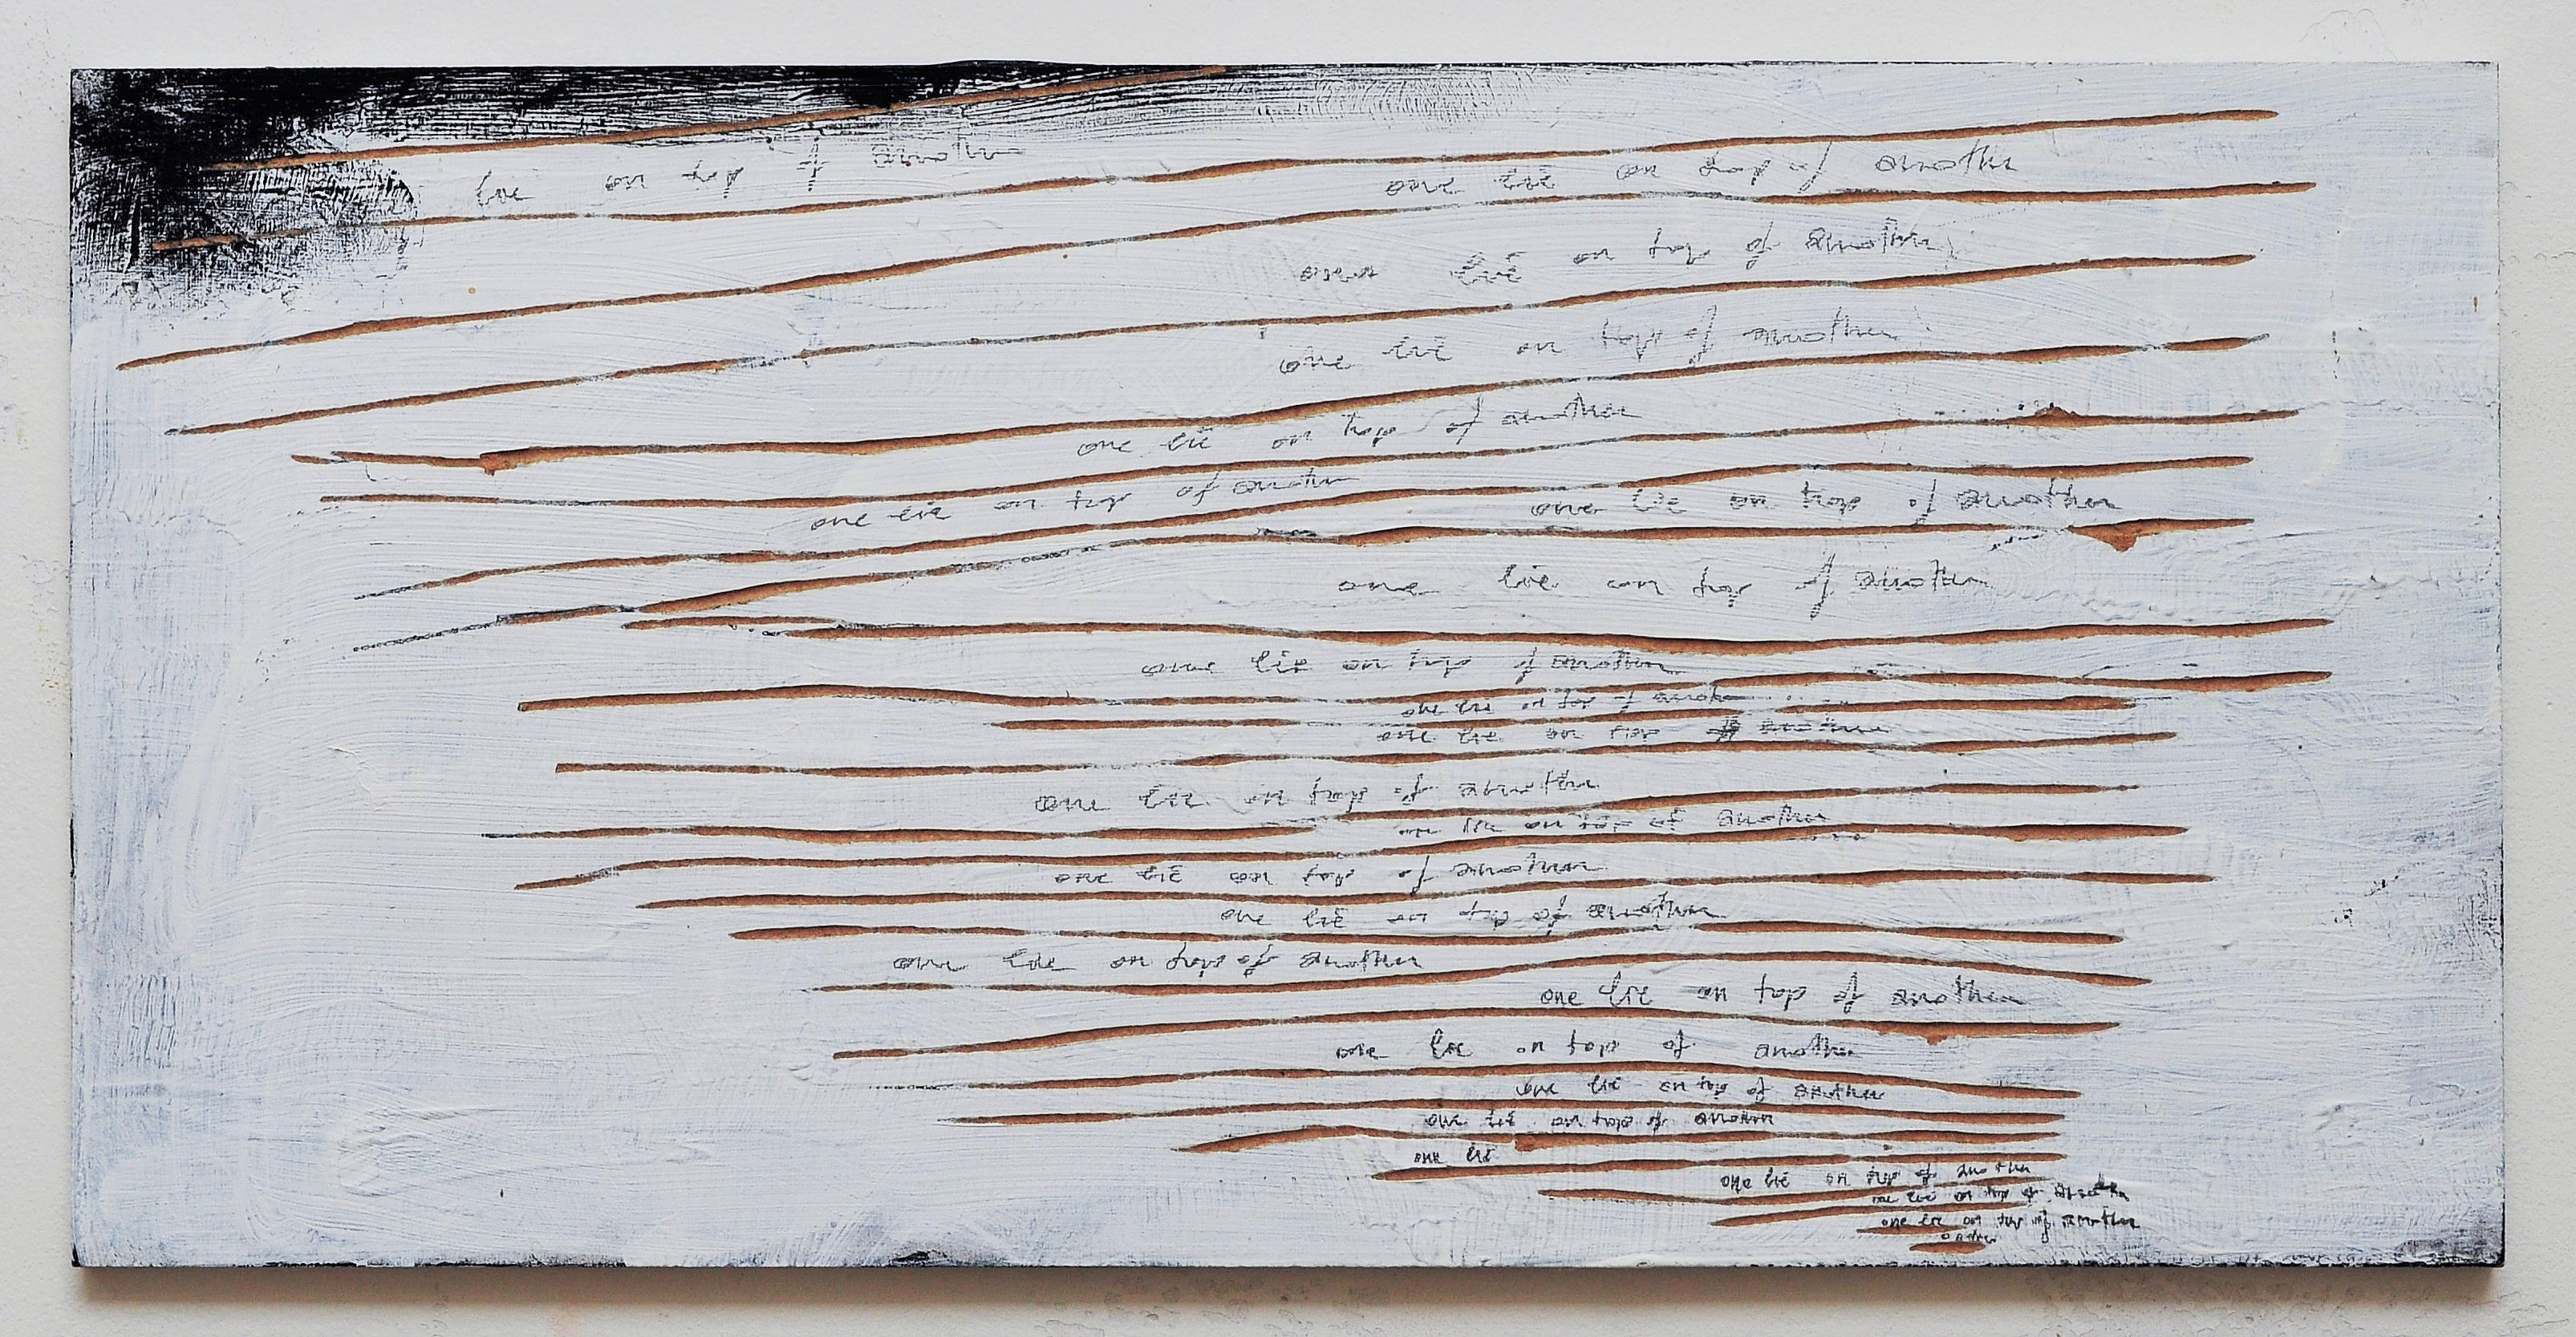 lie on top of another
one lie on top of another
one lie on top of another
one lie on top of another
one lie on top of another
one lie on top of another
one lie on top of another
one lie on top of another
one lie on top of another
one lie on top of another
one lie on top
one lie on top of another
one lie on top of another
one lie on top of another
one lie on top of another
one lie on top of another
one lie on top of another
one lie on top of another
one lie on top of another
one lie on top of another
one lie
one lie on top of another
one lie on top of another
one lie on top of another